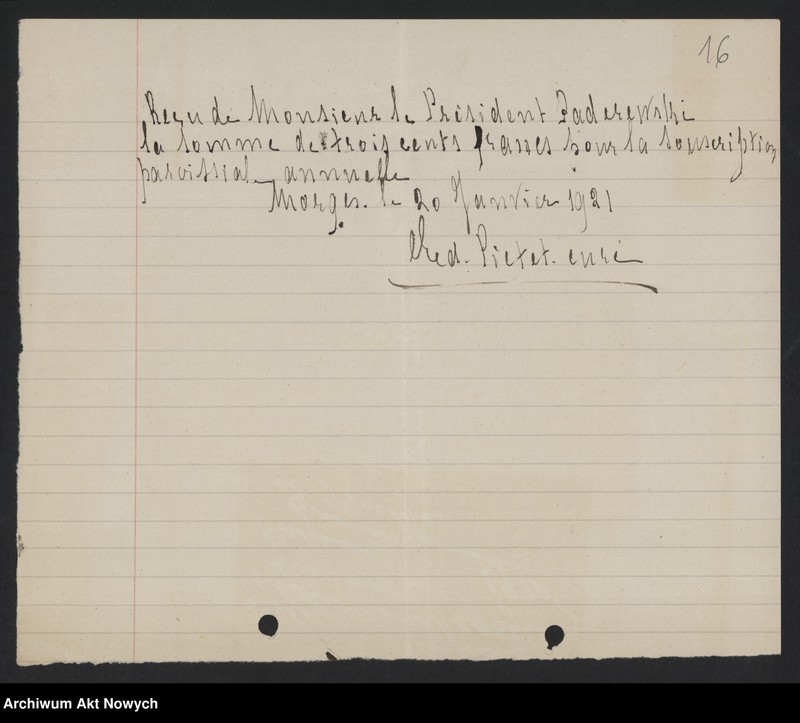 16
Reçu de Monsieur le Président Paderewski
la somme de trois cents francs pour la souscription
paroissiale annuelle
Morges. le 20 Janvier 1921
Pictet. curé
Archiwum Akt Nowych